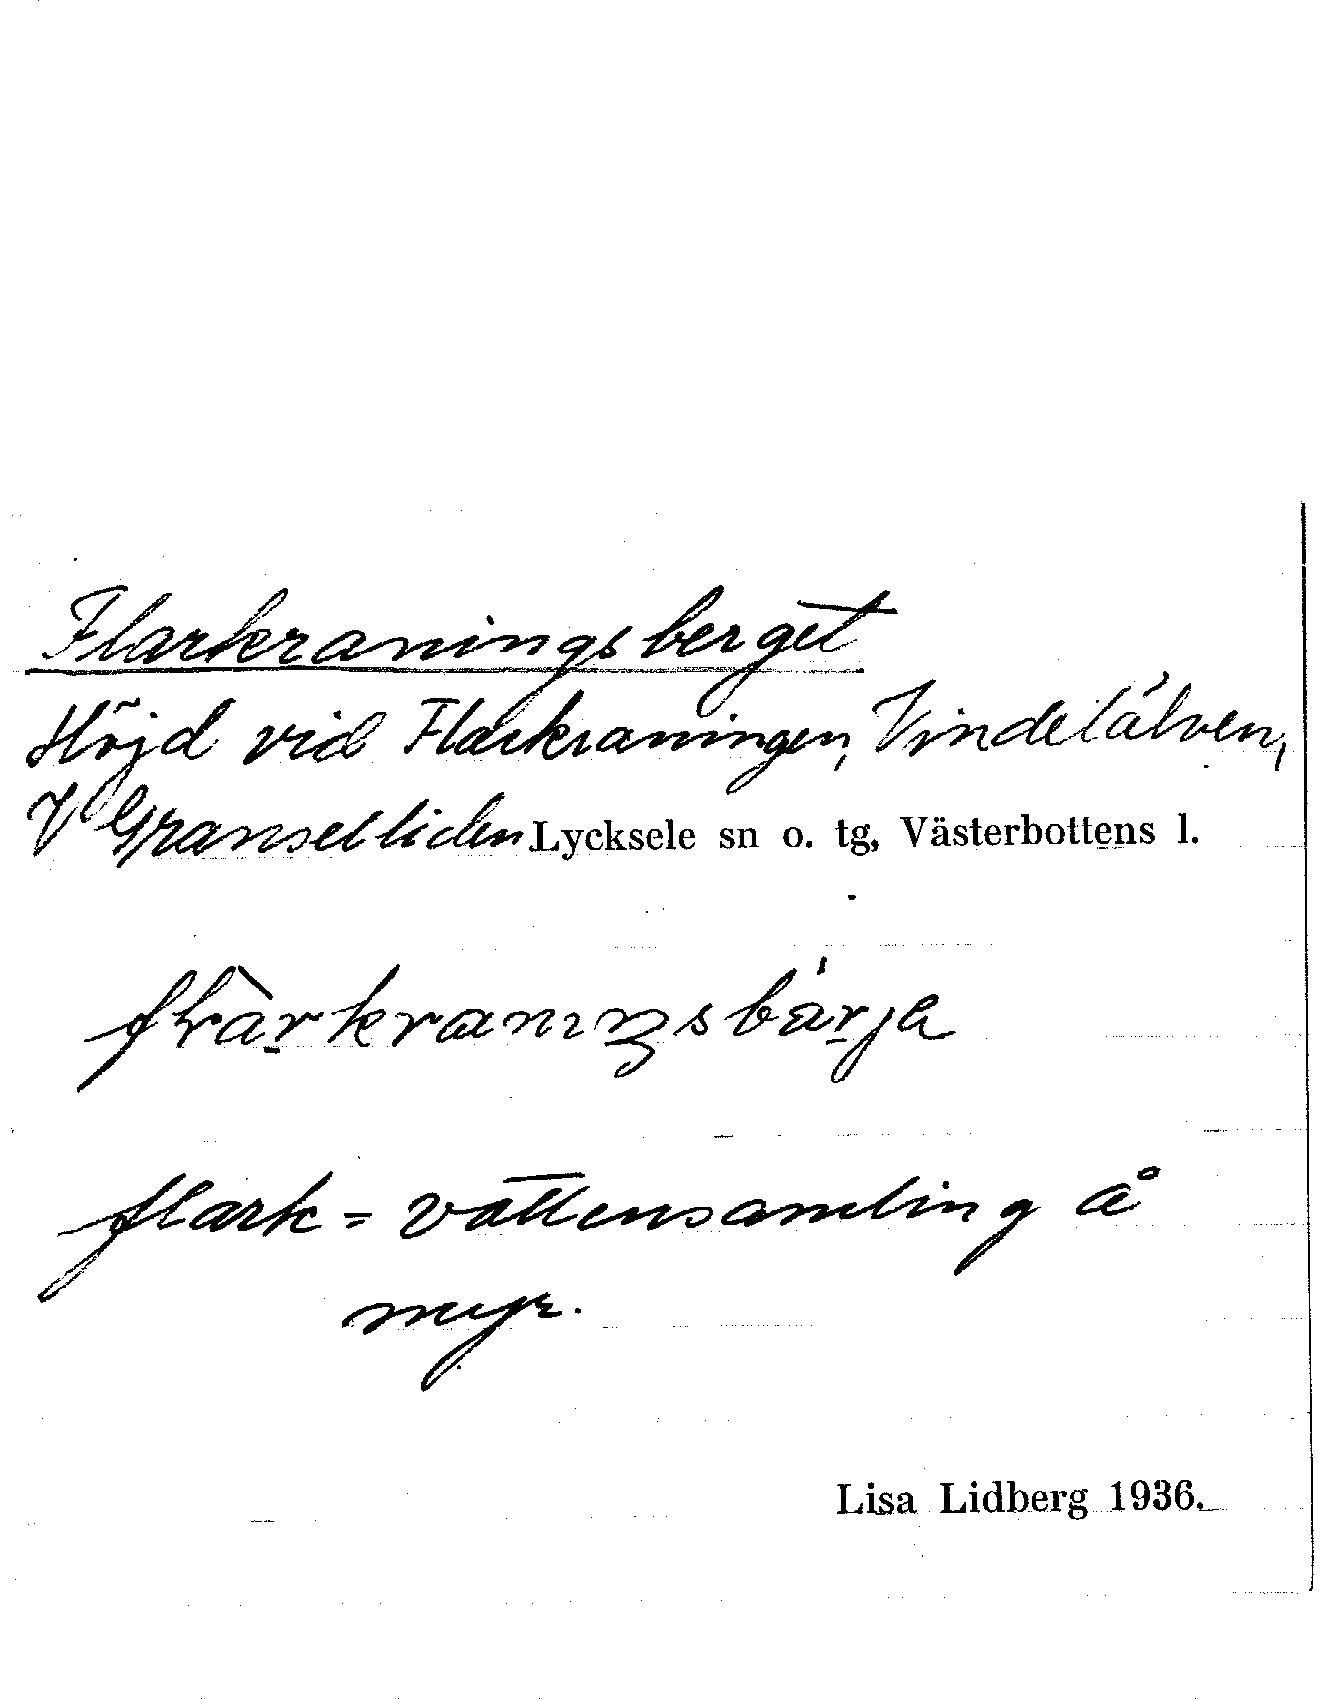 Flarkraningsberget
Höjd vid Flarkraningen, Vindelälven,
V Granselliden Lycksele sn o. tg, Västerbottens l.
flark = vattensamling å
myr.
Lisa Lidberg 1936.